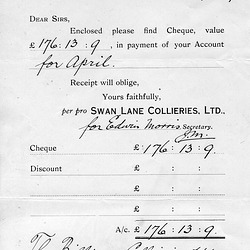 DEAR SIRS,
Enclosed please find Cheque, value
£ 176 : 13 : 9 , in payment of your Account
for April.
Receipt will oblige,
Yours faithfully,
per pro SWAN LANE COLLIERIES, LTD.,
for Edwin Morris Secretary.
Cheque £ 176 : 13 : 9.
Discount £ : :
£ : :
A/c. £ 176 : 13 : 9.